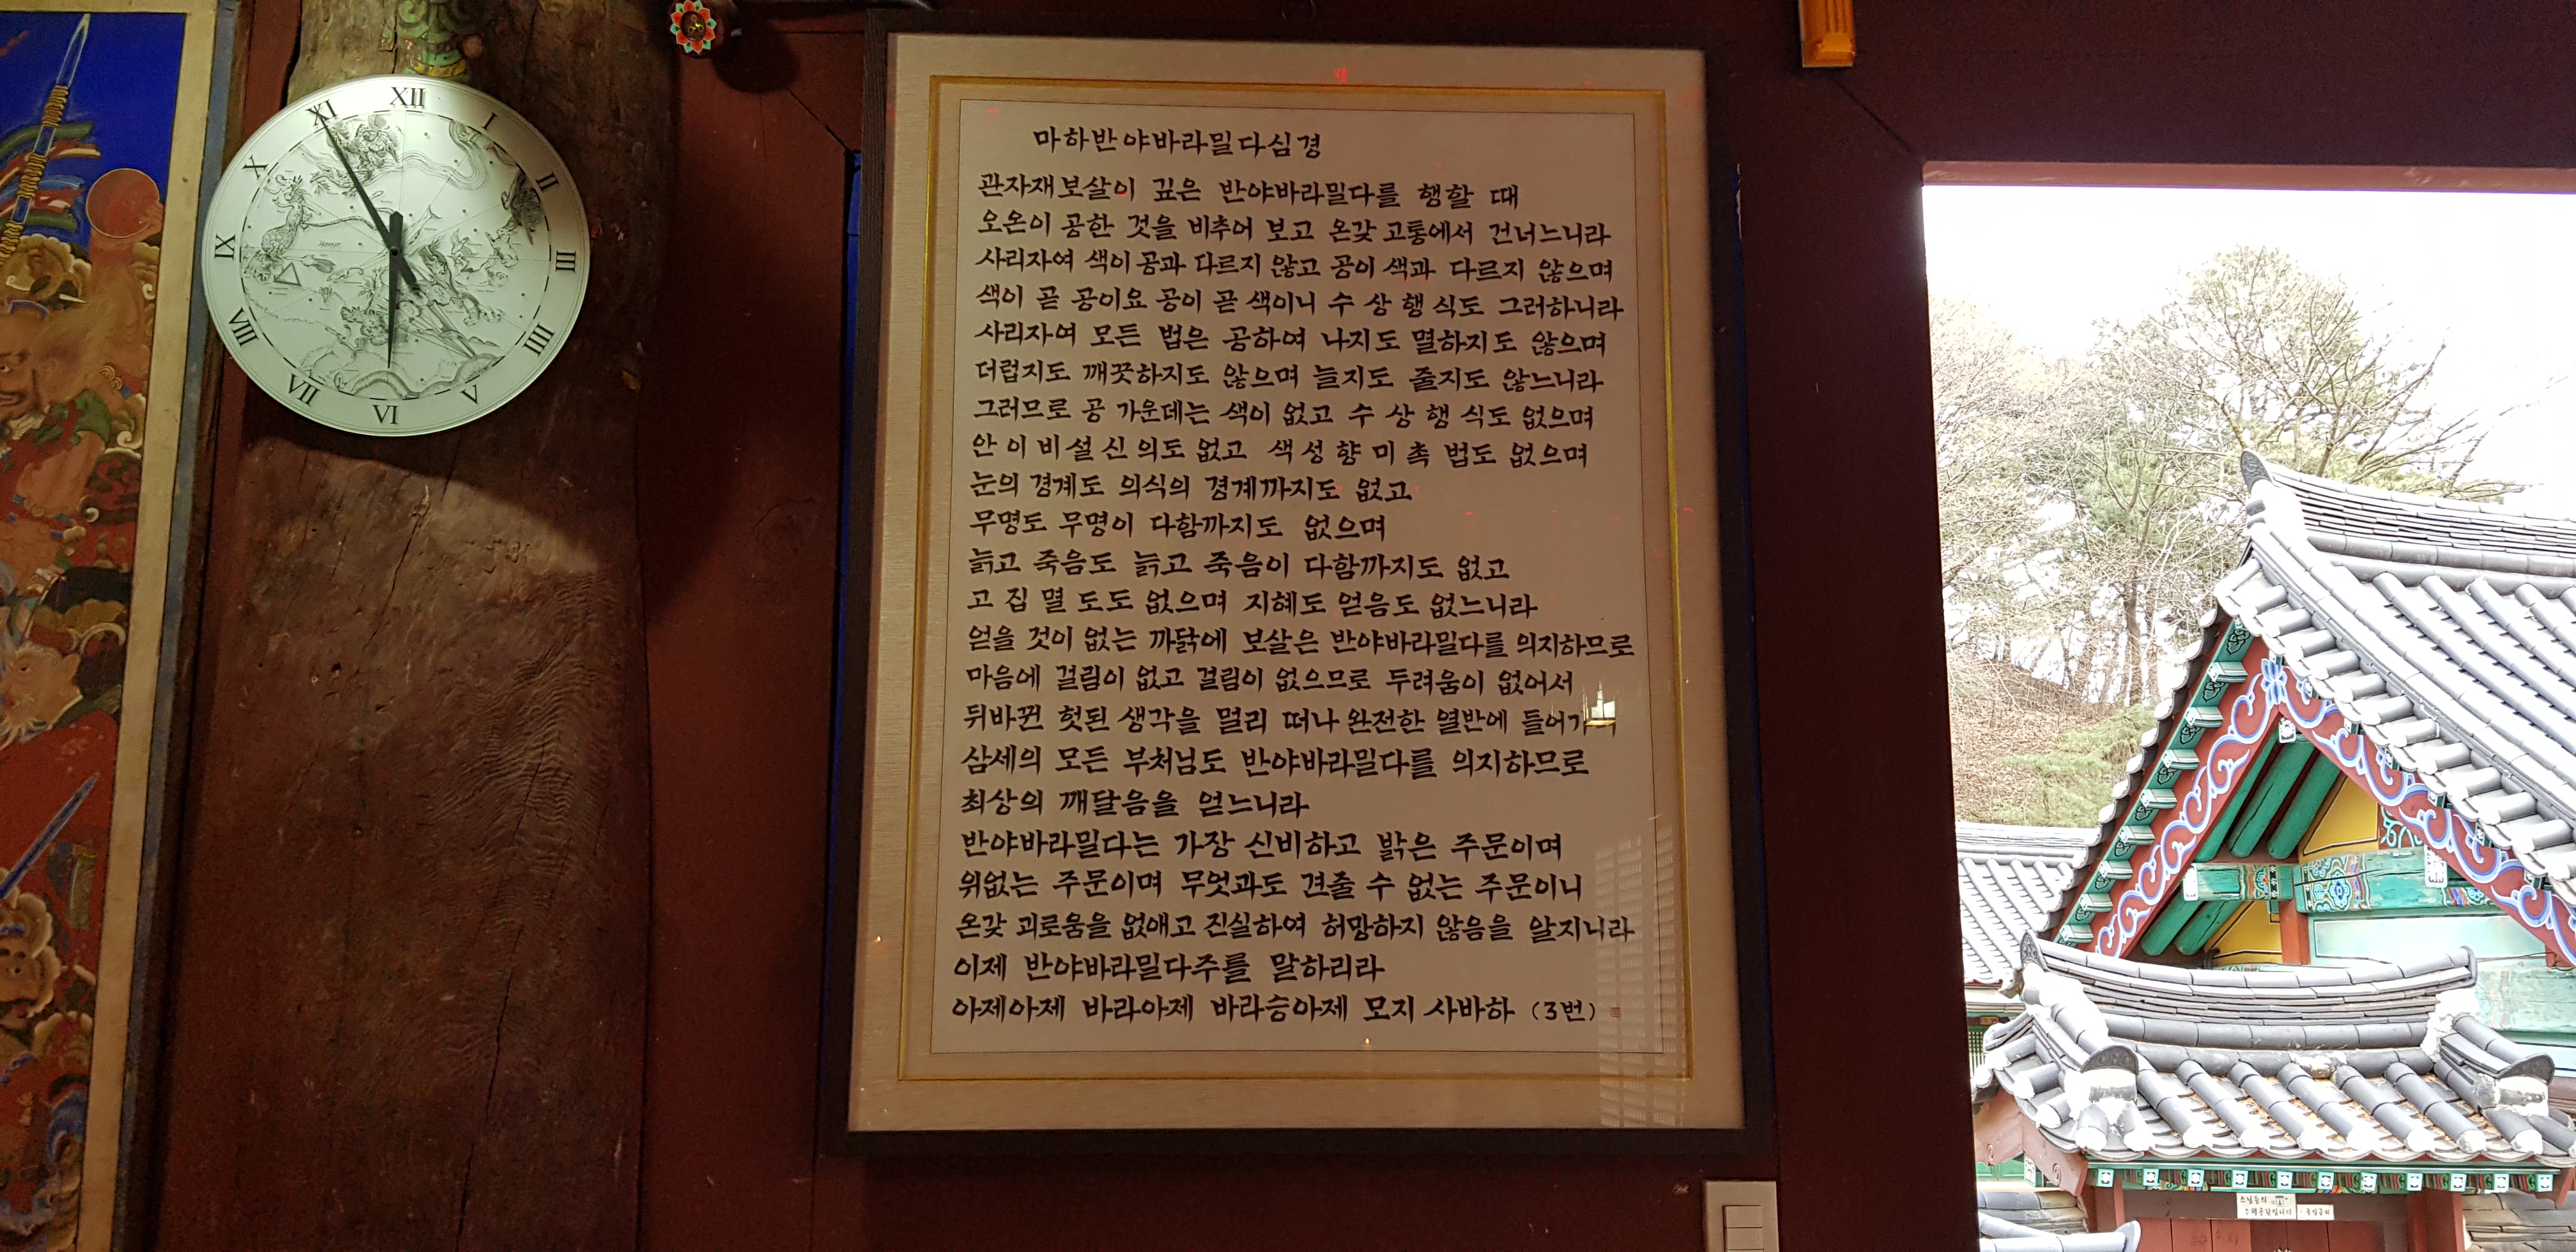 XII
I
II
III
IIII
V
VI
VII
VIII
IX
X
XI
마하반야바라밀다심경
관자재보살이 깊은 반야바라밀다를 행할 때
오온이 공한 것을 비추어 보고 온갖 고통에서 건너느니라
사리자여 색이 공과 다르지 않고 공이 색과 다르지 않으며
색이 곧 공이요 공이 곧 색이니 수 상 행 식도 그러하니라
사리자여 모든 법은 공하여 나지도 멸하지도 않으며
더럽지도 깨끗하지도 않으며 늘지도 줄지도 않느니라
그러므로 공 가운데는 색이 없고 수 상 행 식도 없으며
안 이 비 설 신 의도 없고 색 성 향 미 촉 법도 없으며
눈의 경계도 의식의 경계까지도 없고
무명도 무명이 다함까지도 없으며
늙고 죽음도 늙고 죽음이 다함까지도 없고
고 집 멸 도도 없으며 지혜도 얻음도 없느니라
얻을 것이 없는 까닭에 보살은 반야바라밀다를 의지하므로
마음에 걸림이 없고 걸림이 없으므로 두려움이 없어서
뒤바뀐 헛된 생각을 멀리 떠나 완전한 열반에
삼세의 모든 부처님도 반야바라밀다를 의지하므로
최상의 깨달음을 얻느니라
반야바라밀다는 가장 신비하고 밝은 주문이며
위없는 주문이며 무엇과도 견줄 수 없는 주문이니
온갖 괴로움을 없애고 진실하여 허망하지 않음을 알지니라
이제 반야바라밀다주를 말하리라
아제아제 바라아제 바라승아제 모지 사바하 (3번)
스님들의
수행공간입니다